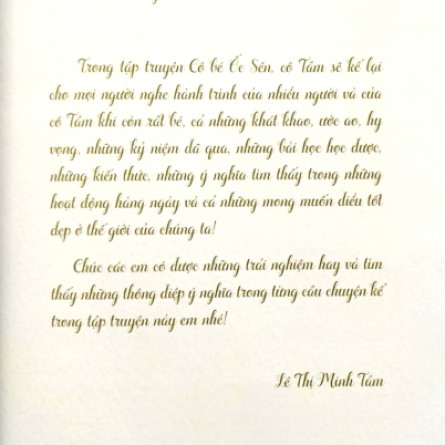 Trong tập truyện Cô bé Ốc Sên, cô Tâm sẽ kể lại
cho mọi người nghe hành trình của nhiều người và của
cô Tâm khi còn rất bé, cả những khát khao, ước ao, hy
vọng, những kỷ niệm đã qua, những bài học học được,
những kiến thức, những ý nghĩa tìm thấy trong những
hoạt động hàng ngày và cả những mong muốn điều tốt
đẹp ở thế giới của chúng ta!
Chúc các em có được những trải nghiệm hay và tìm
thấy những thông điệp ý nghĩa trong từng câu chuyện kể
trong tập truyện này em nhé!
Lê Thị Minh Tâm